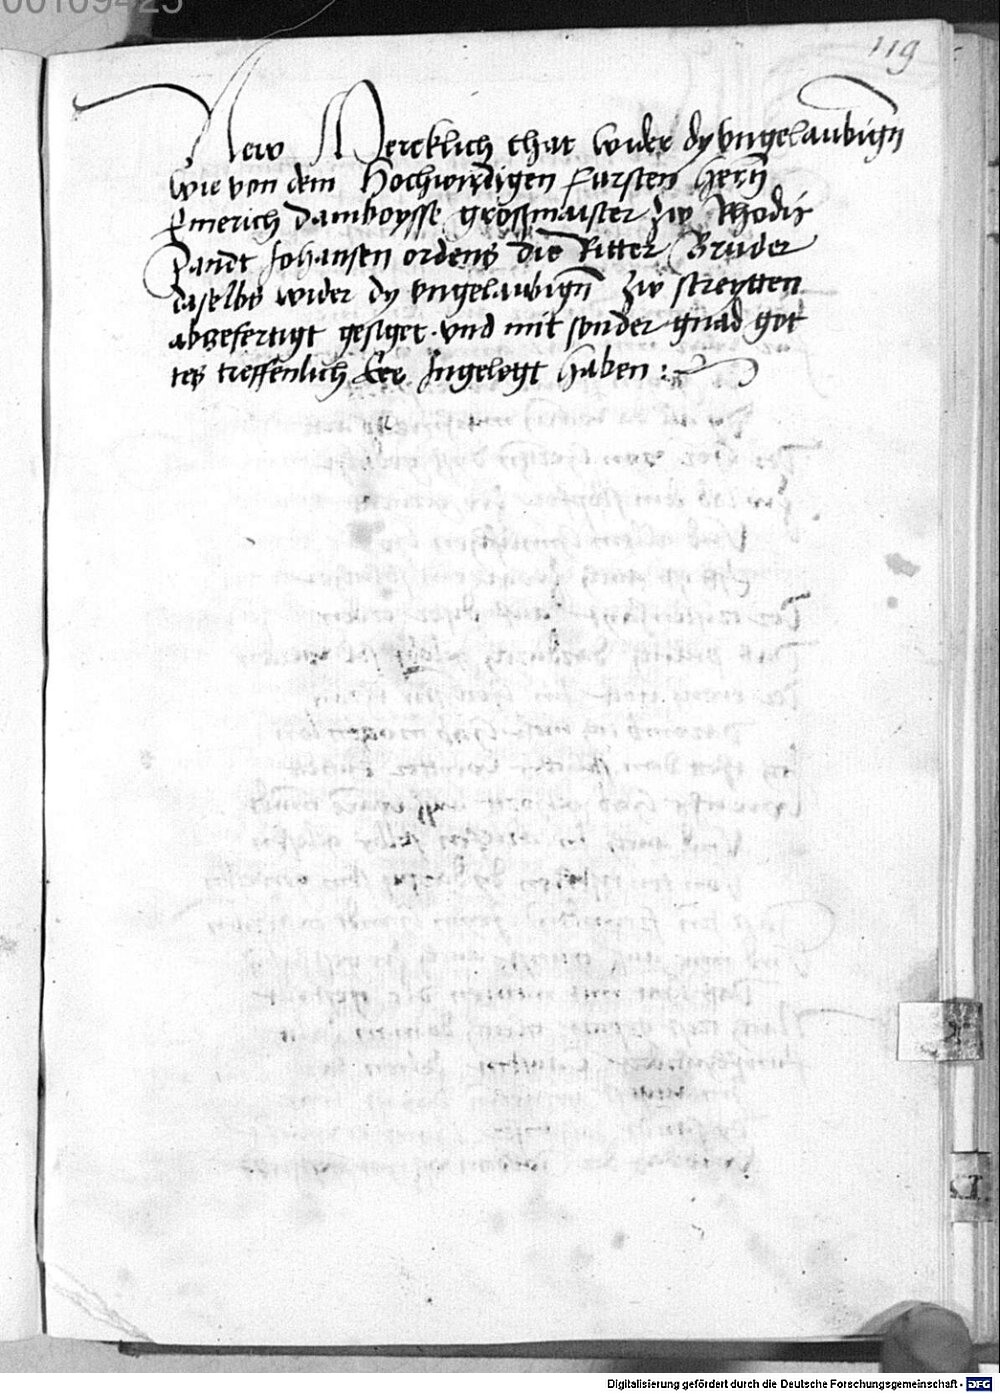 00109425
119
New Mercklich that wider dy vngelaubign
wie von dem Hochwirdigen fursten hern
Emerich Damboysse grossmaister zw Rhodis
Sandt Johansen ordens die Ritter Bruder
daselbs wider dy vngelaubign zw streytten
abgefertigt gesiget. vnd mit sonder gnad got
tes treffenlich Eer Ingelegt haben :
Digitalisierung gefördert durch die Deutsche Forschungsgemeinschaft - DFG